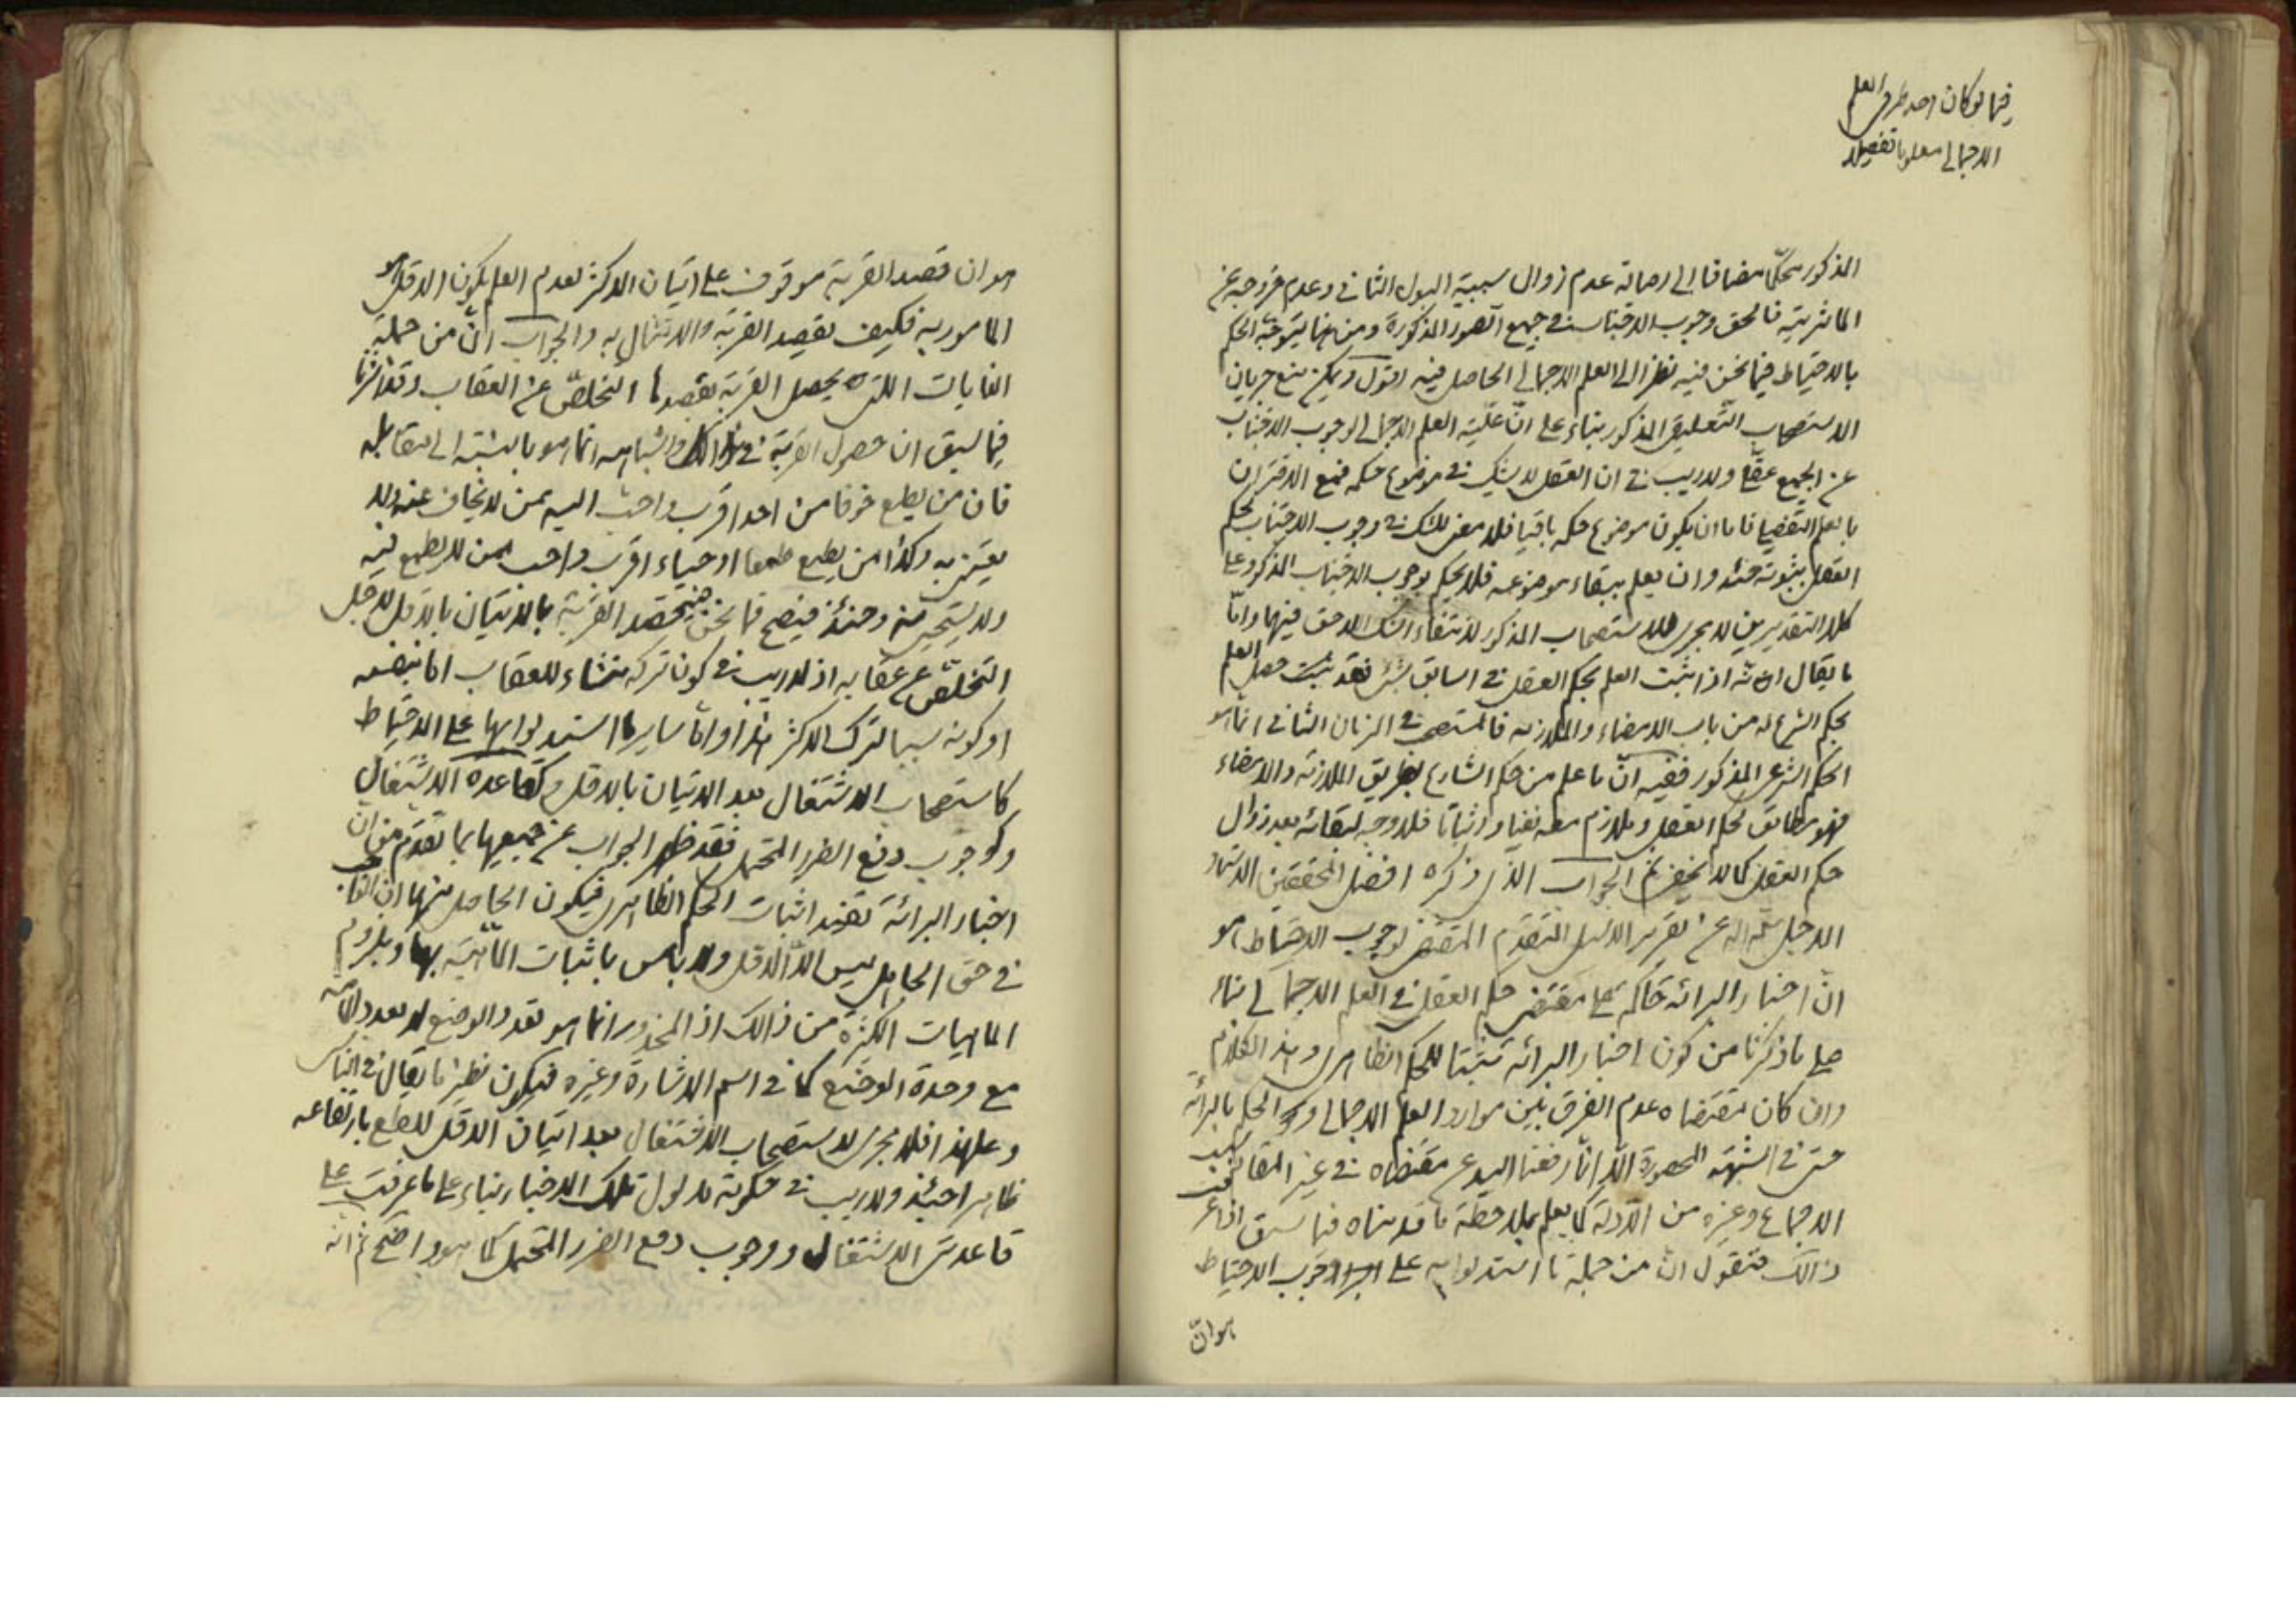 فيما لو كان احد طرفى العلم
الاجمالى معلوما تفصيلا
المذكور محكّما مضافا الى اصالة عدم زوال سببية البول الثانى وعدم خروجه عن
المؤثرية فالحق وجوب الاجتناب فى جميع الصور المذكورة ومن هنا يتوجّه الحكم
بالاحتياط فيما نحن فيه نظرا الى العلم الاجمالى الحاصل فيه اقول ويمكن منع جريان
الاستصحاب التعليقى المذكور بناء على انّ علّية العلم الاجمالى لوجوب الاجتناب
عن الجميع عقلى ولاريب فى ان العقل لا يشك فى موضوع حكمه فمع الاقتران
بالعلم التفصيلى فاما ان يكون موضوع حكمه باقيا فلا معنى للشك فى وجوب الاجتناب لحكم
العقل بثبوته حينئذ وان يعلم ببقاء موضوعه فلا يحكم بوجوب الاجتناب المذكور وعلى
كلا التقديرين لا يجرى الاستصحاب المذكور لانتفاء الشك اللاحق فيهما وامّا
ما يقال انّه اذا ثبت العلم بحكم العقل فى السابق بشئ فقد ثبت حصل العلم
بحكم الشرع له من باب الامضاء والملازمه فالمستصحب فى الزمان الثانى انما هو
الحكم الشرعى المذكور ففيه انّ ما علم من حكم الشارع بطريق الملازمة والامضاء
فهو مطابق لحكم العقل ويلازم معه نفيا واثباتا فلا وجه لبقائه بعد زوال
حكم العقل كما لا يخفى ثم الجواب الذى ذكره افضل المحققين الاستاد
الاجل سلّمه اللّه عن تقرير الدليل المتقدّم المقتضى لوجوب الاحتياط هو
انّ اخبار البرائه حاكمة على مقتضى حكم العقل فى العلم الاجمالى بناء
على ما ذكرنا من كون اخبار البرائه مثبتا للحكم الظاهرى وهذا الكلام
وان كان مقتضاه عدم الفرق بين موارد العلم الاجمالى والحكم بالبرائة
حتى فى الشبهة المحصورة الّا انّا رفعنا اليد عن مقتضاه فى غير المقام بسبب
الاجماع وغيره من الادّلة كما يعلم بملاحظة ما قدمناه فيما سبق اذا عرفت
ذالك فنقول انّ من جملة ما استدلوا به على وجوب الاحتياط
هو انّ
هو ان قصد القربة موقوف على اتيان الاكثر لعدم العلم بكون الاقل هو
المامور به فكيف يقصد القربة والامتثال به والجواب انّ من جملة
الغايات اللتى يحصل القربة بقصدها التخلّص عن العقاب وقد اشرنا
فيما سبق ان حصول القربة فى واشباهه انما هو بالنسبة الى مقابله
فان من يطيع خوفا من احد اقرب واحب اليه ممن لا يخاف عنه ولا
يعتنى به وكذا من يطيع طمعا او حياء اقرب واحب ممن لا يطمع فيه
ولا يستحيى منه وحينئذ فيصح فيما نحن فيه قصد القربة بالاتيان بالاقل لاجل
التخلّص عن عقابه اذ لاريب فى كون تركه منشاء للعقاب اما بنفسه
او كونه سببا لترك الاكثر هذا واما ساير ما استدلوا بها على الاحتياط
كاستصحاب الاشتغال بعد الاتيان بالاقل وكقاعدة الاشتغال
وكوجوب دفع الضرر المحتمل فقد ظهر الجواب عن جميعها بما تقدّم من انّ
اخبار البرائة تفيد اثبات الحكم الظاهرى فيكون الحاصل منها ان الواجب
فى حق الجاهل ليس الّا الاقل ولا باس باثبات الماهيّة بها ويلزوم
الماهيات الكثيرة من ذالك اذ المحذور انما هو تعدد الوضع لا تعدد الماهية
مع وحدة الوضع كما فى اسم الاشارة وغيره فيكون نظير ما يقال فى الناسى
وعلى هذا فلا مجرى لاستصحاب الاشتغال بعد اتيان الاقل للقطع بارتفاعه
ظاهرا حينئذ ولاريب فى حكومة مدلول تلك الاخبار بناء على ما عرفت على
قاعدتى الاشتغال ووجوب دفع الضرر المحتمل كما هو واضح ثم انّه